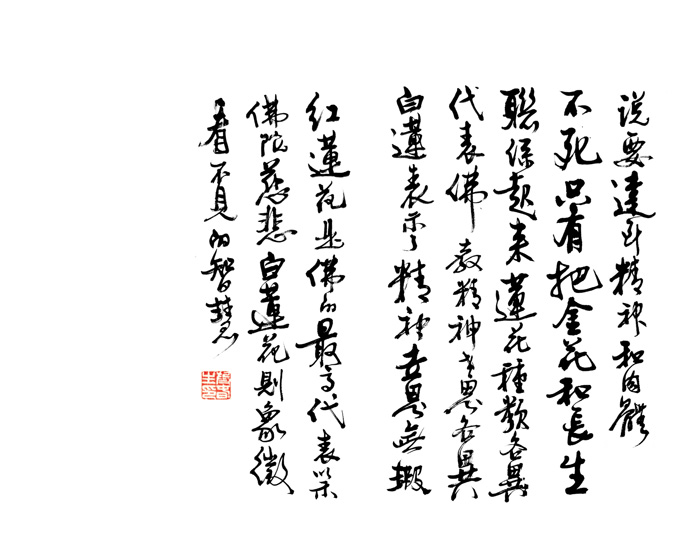 说要達到精神和肉體
不死只有把金花和長生
聯係起来蓮花種類各異
代表佛教精神世界各異
白蓮表示精神世界無瑕
红蓮花是佛的最高代表以
佛陀慈悲白蓮花則象徵
看不見的智慧